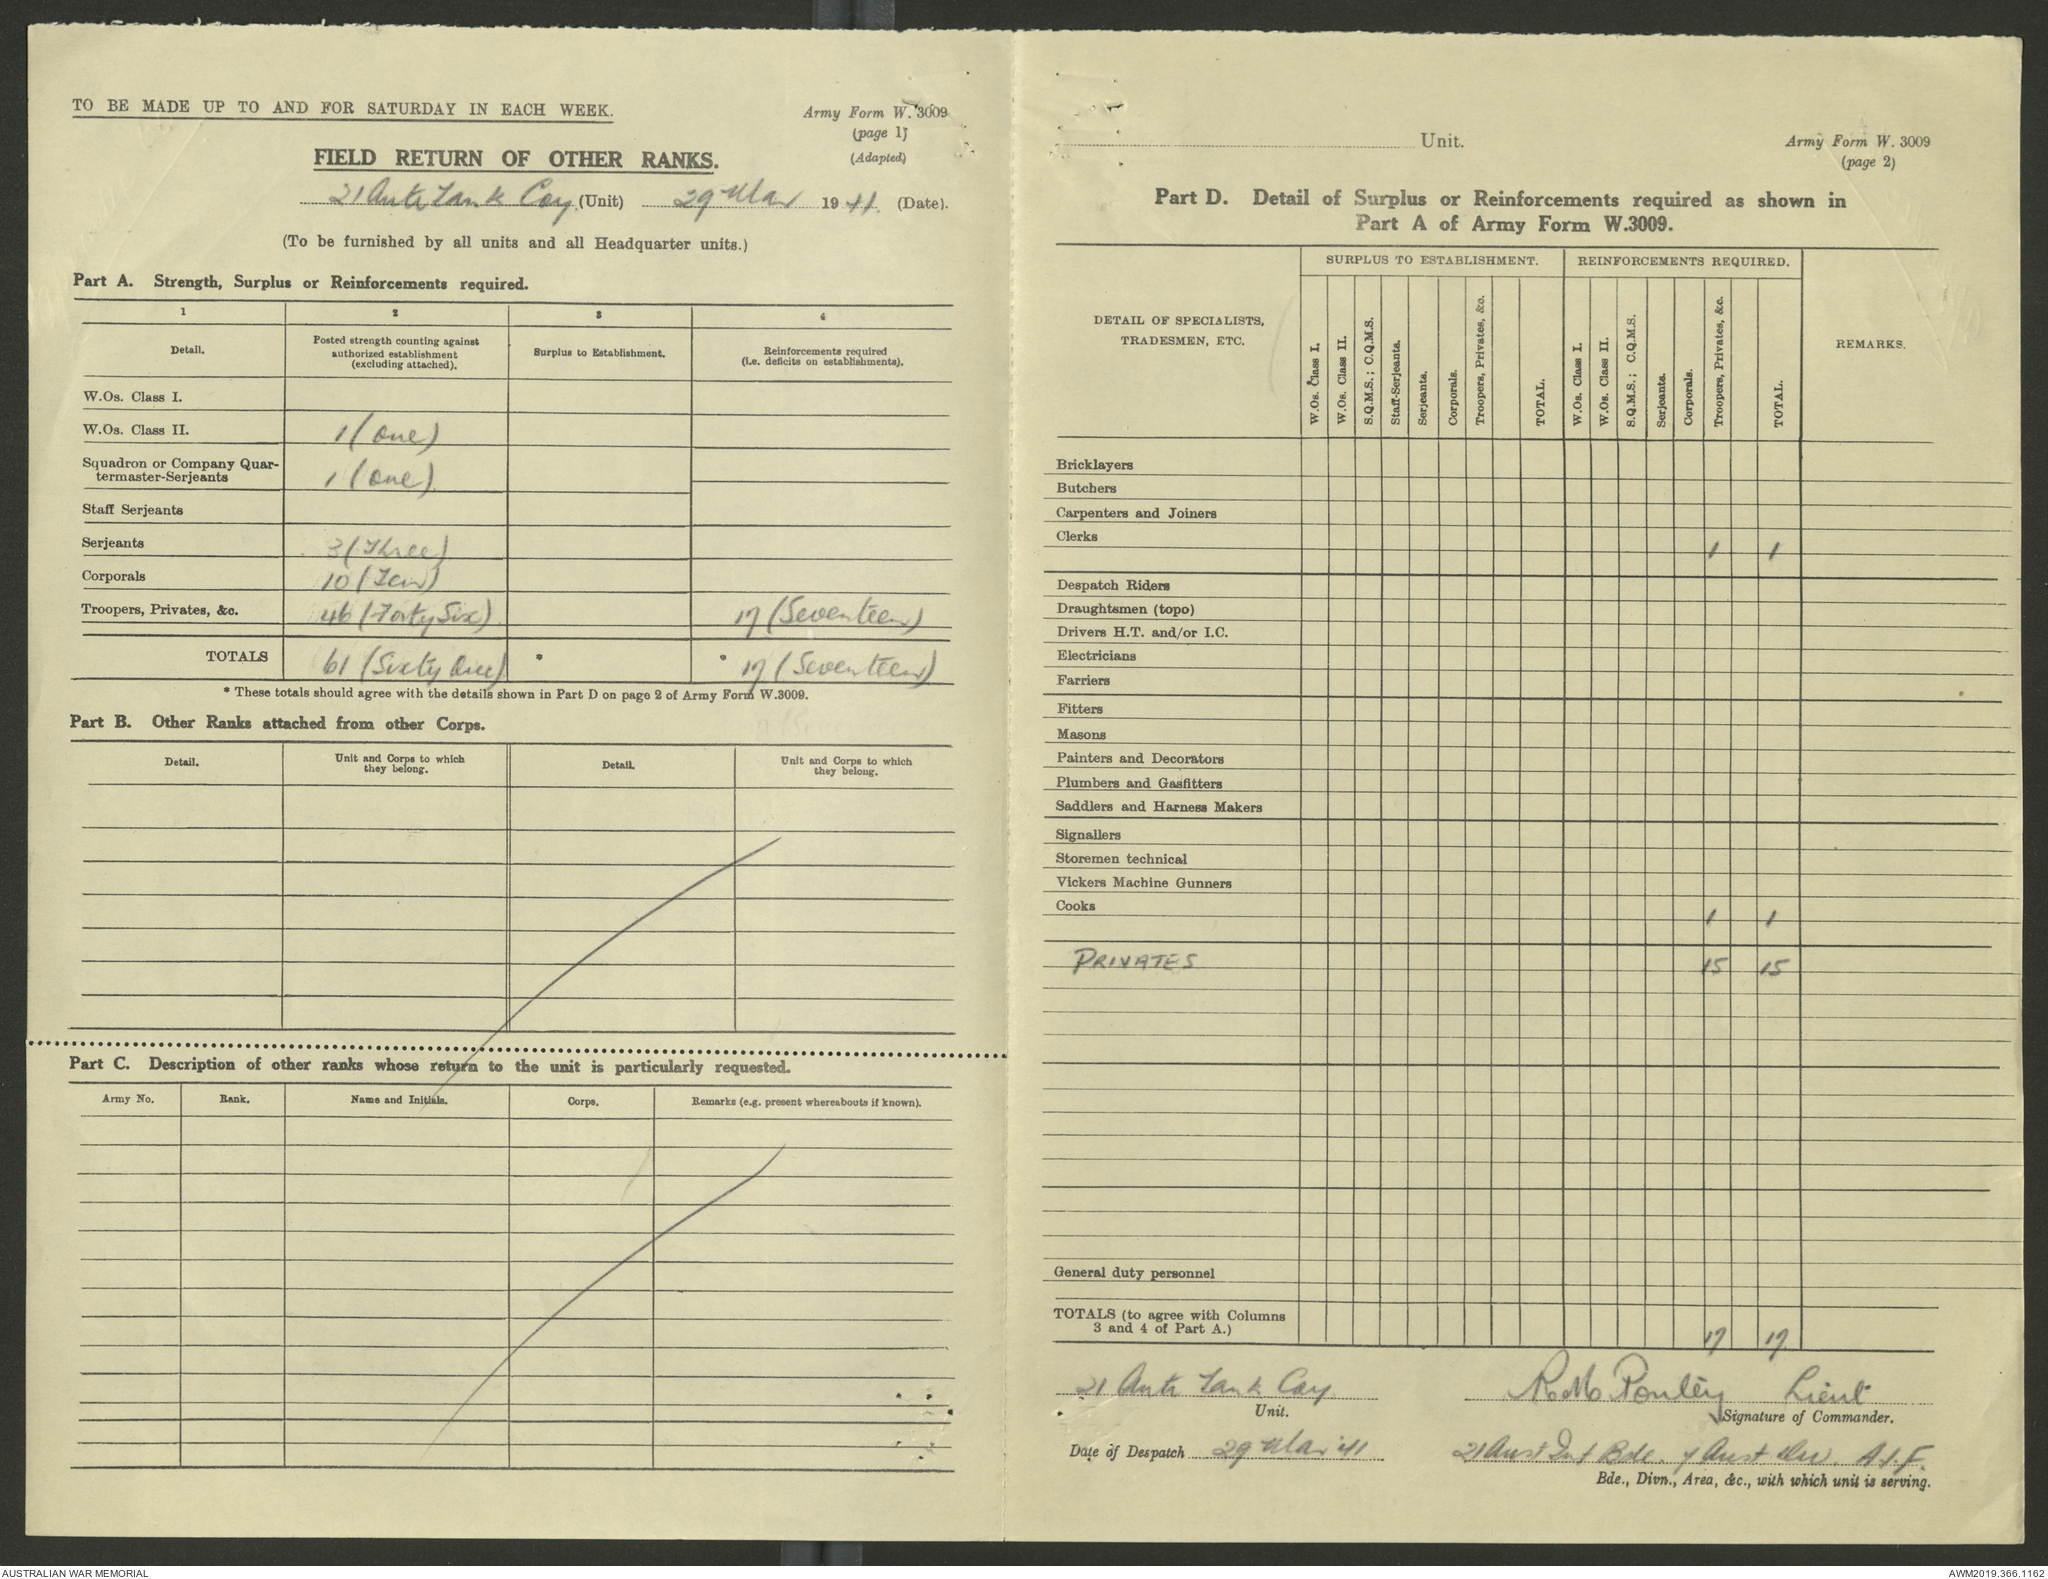 TO BE MADE UP TO AND FOR SATURDAY IN EACH WEEK.
Army Form W. 3009
(page 1)
(Adapted)
FIELD RETURN OF OTHER RANKS.
21 Anti Tank Coy (Unit) 29 Mar 1941. (Date).
(To be furnished by all units and all Headquarter units.)
Part A. Strength, Surplus or Reinforcements required.
1 2 3 4
Detail. Posted strength counting against authorized establishment (excluding attached). Surplus to Establishment. Reinforcements required (i.e. deficits on establishments).
W.Os. Class I.
W.Os. Class II. 1 (One)
Squadron or Company Quar-
termaster-Serjeants 1 (One)
Staff Serjeants
Serjeants 3 (Three)
Corporals 10 (Ten)
Troopers, Privates, &c. 46 (Forty Six) 17 (Seventeen)
TOTALS 61 (Sixty One) * * 17 (Seventeen)
* These totals should agree with the details shown in Part D on page 2 of Army Form W.3009.
Part B. Other Ranks attached from other Corps.
Detail. Unit and Corps to which they belong. Detail. Unit and Corps to which they belong.
Part C. Description of other ranks whose return to the unit is particularly requested.
Army No. Rank. Name and Initials. Corps. Remarks (e.g. present whereabouts if known).
Unit.
Army Form W. 3009
(page 2)
Part D. Detail of Surplus or Reinforcements required as shown in
Part A of Army Form W.3009.
DETAIL OF SPECIALISTS, TRADESMEN, ETC.
SURPLUS TO ESTABLISHMENT. REINFORCEMENTS REQUIRED.
W.Os. Class I. W.Os. Class II. S.Q.M.S.; C.Q.M.S. Staff-Serjeants. Serjeants. Corporals. Troopers, Privates, &c. TOTAL. W.Os. Class I. W.Os. Class II. S.Q.M.S.; C.Q.M.S. Serjeants. Corporals. Troopers, Privates, &c. TOTAL. REMARKS.
Bricklayers
Butchers
Carpenters and Joiners
Clerks 1 1
Despatch Riders
Draughtsmen (topo)
Drivers H.T. and/or I.C.
Electricians
Farriers
Fitters
Masons
Painters and Decorators
Plumbers and Gasfitters
Saddlers and Harness Makers
Signallers
Storemen technical
Vickers Machine Gunners
Cooks 1 1
PRIVATES 15 15
General duty personnel
TOTALS (to agree with Columns
3 and 4 of Part A.) 17 17
21 Anti Tank Coy.
Unit.
Lieut
Signature of Commander.
Date of Despatch 29 Mar '41
21 Aust Inf Bde. 7 Aust Div. A.I.F.
Bde., Divn., Area, &c., with which unit is serving.
AUSTRALIAN WAR MEMORIAL
AWM2019.366.1162